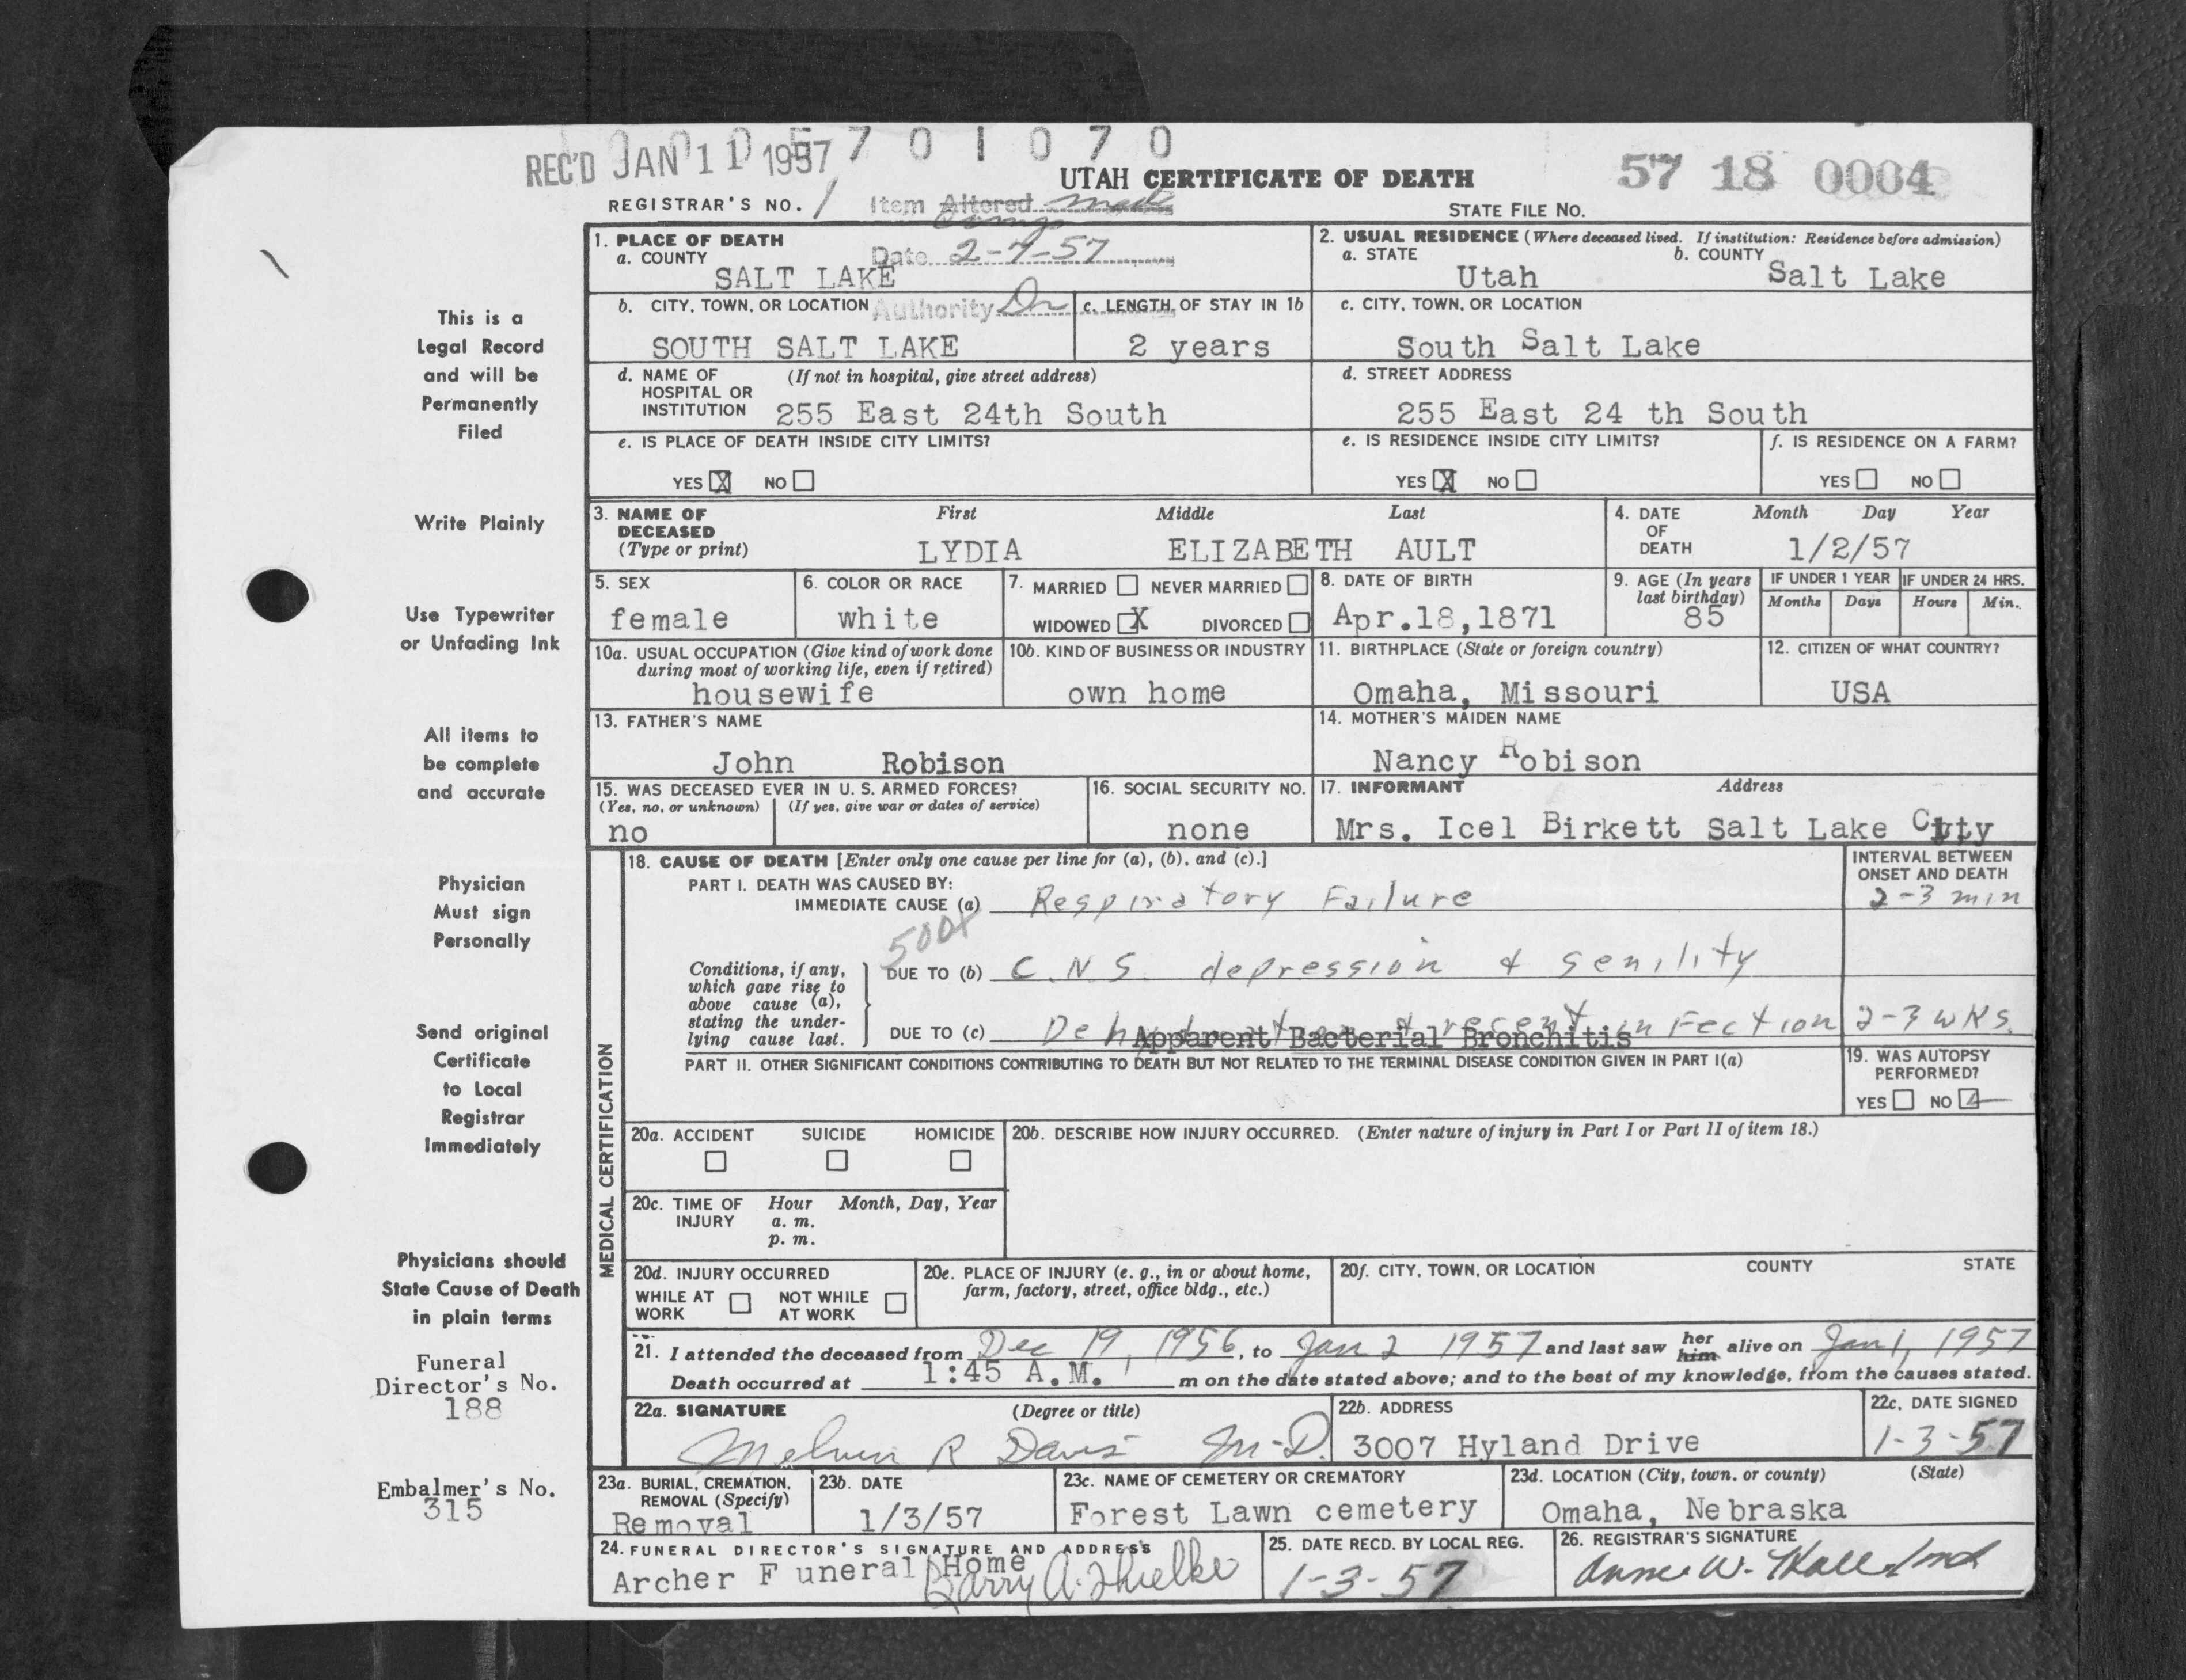 0 0 0 5 7 0 1 0 7 0
REC'D JAN 11 1957
UTAH CERTIFICATE OF DEATH
57 18 0004
REGISTRAR'S NO. 1
Item Altered
STATE FILE No.
Date 2-7-57
Authority Dr
1. PLACE OF DEATH
a. COUNTY
SALT LAKE
2. USUAL RESIDENCE (Where deceased lived. If institution: Residence before admission)
a. STATE b. COUNTY
Utah Salt Lake
b. CITY, TOWN, OR LOCATION
SOUTH SALT LAKE
c. LENGTH OF STAY IN 1b
2 years
c. CITY, TOWN, OR LOCATION
South Salt Lake
d. NAME OF (If not in hospital, give street address)
HOSPITAL OR
INSTITUTION 255 East 24th South
d. STREET ADDRESS
255 East 24 th South
e. IS PLACE OF DEATH INSIDE CITY LIMITS?
YES X NO
e. IS RESIDENCE INSIDE CITY LIMITS?
YES X NO
f. IS RESIDENCE ON A FARM?
YES NO
3. NAME OF First Middle Last
DECEASED
(Type or print) LYDIA ELIZABETH AULT
4. DATE Month Day Year
OF
DEATH 1/2/57
5. SEX
female
6. COLOR OR RACE
white
7. MARRIED NEVER MARRIED
WIDOWED X DIVORCED
8. DATE OF BIRTH
Apr.18,1871
9. AGE (In years
last birthday)
85
IF UNDER 1 YEAR IF UNDER 24 HRS.
Months Days Hours Min.
10a. USUAL OCCUPATION (Give kind of work done
during most of working life, even if retired)
housewife
10b. KIND OF BUSINESS OR INDUSTRY
own home
11. BIRTHPLACE (State or foreign country)
Omaha, Missouri
12. CITIZEN OF WHAT COUNTRY?
USA
13. FATHER'S NAME
John Robison
14. MOTHER'S MAIDEN NAME
Nancy Robison
15. WAS DECEASED EVER IN U. S. ARMED FORCES?
(Yes, no, or unknown) (If yes, give war or dates of service)
no
16. SOCIAL SECURITY NO.
none
17. INFORMANT Address
Mrs. Icel Birkett Salt Lake City
MEDICAL CERTIFICATION
18. CAUSE OF DEATH [Enter only one cause per line for (a), (b), and (c).]
INTERVAL BETWEEN
ONSET AND DEATH
PART I. DEATH WAS CAUSED BY:
IMMEDIATE CAUSE (a) Respiratory Failure 2-3 min
500x
Conditions, if any,
which gave rise to
above cause (a),
stating the under-
lying cause last.
DUE TO (b) C.N.S. depression & senility
DUE TO (c) Dehydration & recent infection 2-3 wks.
Apparent Bacterial Bronchitis
PART II. OTHER SIGNIFICANT CONDITIONS CONTRIBUTING TO DEATH BUT NOT RELATED TO THE TERMINAL DISEASE CONDITION GIVEN IN PART I(a)
19. WAS AUTOPSY
PERFORMED?
YES NO
20a. ACCIDENT SUICIDE HOMICIDE
20b. DESCRIBE HOW INJURY OCCURRED. (Enter nature of injury in Part I or Part II of item 18.)
20c. TIME OF Hour Month, Day, Year
INJURY a. m.
p. m.
20d. INJURY OCCURRED
WHILE AT NOT WHILE
WORK AT WORK
20e. PLACE OF INJURY (e. g., in or about home,
farm, factory, street, office bldg., etc.)
20f. CITY, TOWN, OR LOCATION COUNTY STATE
21. I attended the deceased from Dec 19, 1956, to Jan 2 1957 and last saw her him alive on Jan 1, 1957
Death occurred at 1:45 A.M. m on the date stated above; and to the best of my knowledge, from the causes stated.
22a. SIGNATURE (Degree or title)
Melvin R Davis M-D.
22b. ADDRESS
3007 Hyland Drive
22c. DATE SIGNED
1-3-57
23a. BURIAL, CREMATION,
REMOVAL (Specify)
Removal
23b. DATE
1/3/57
23c. NAME OF CEMETERY OR CREMATORY
Forest Lawn cemetery
23d. LOCATION (City, town, or county) (State)
Omaha, Nebraska
24. FUNERAL DIRECTOR'S SIGNATURE AND ADDRESS
Archer Funeral Home
25. DATE RECD. BY LOCAL REG.
1-3-57
26. REGISTRAR'S SIGNATURE
This is a
Legal Record
and will be
Permanently
Filed
Write Plainly
Use Typewriter
or Unfading Ink
All items to
be complete
and accurate
Physician
Must sign
Personally
Send original
Certificate
to Local
Registrar
Immediately
Physicians should
State Cause of Death
in plain terms
Funeral
Director's No.
188
Embalmer's No.
315